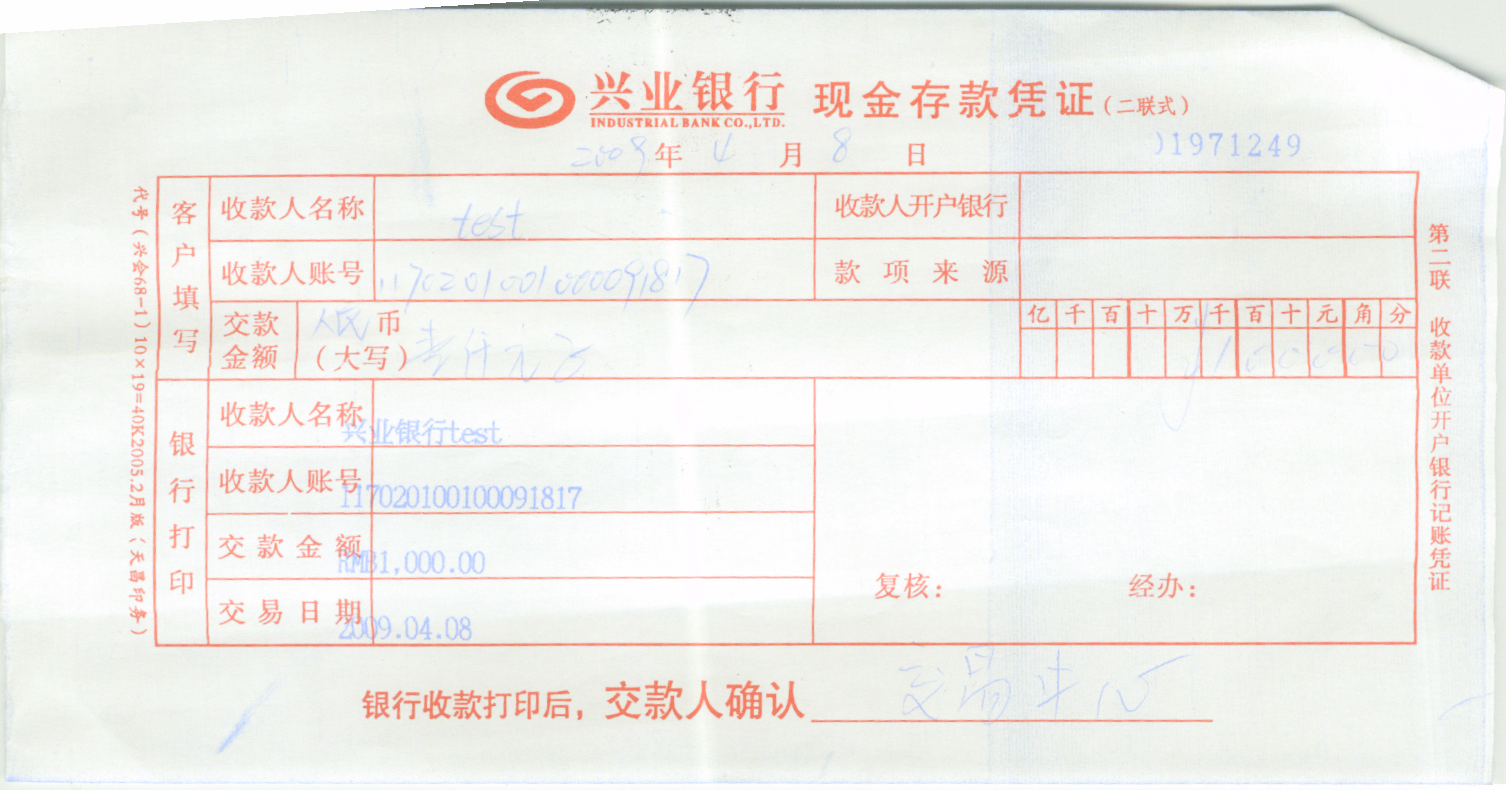 兴业银行 现金存款凭证(二联式)
INDUSTRIAL BANK CO.,LTD.
2009 年 4 月 8 日
1971249
代号(兴会68-1)10×19=40K2005.2月版(天昌印务)
客户填写
收款人名称 test 收款人开户银行
收款人账号 117020100100091817 款项来源
交款金额 人民币(大写) 壹仟元正 亿千百十万千百十元角分
¥100000
银行打印
收款人名称 兴业银行test
收款人账号 117020100100091817
交款金额 RMB1,000.00
交易日期 2009.04.08
复核: 经办:
第二联 收款单位开户银行记账凭证
银行收款打印后,交款人确认 交易中心